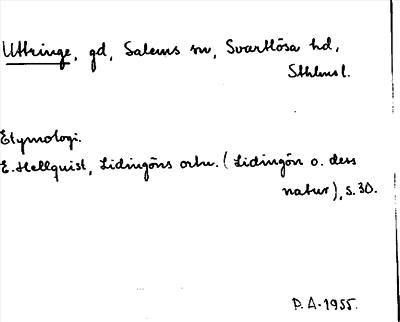 Uttringe, gd, Salems sn, Svartlösa hd,
Sthlms l.
Etymologi.
E. Hellquist, Lidingöns ortn. (Lidingön o. dess
natur), s. 30.
P. A. 1955.